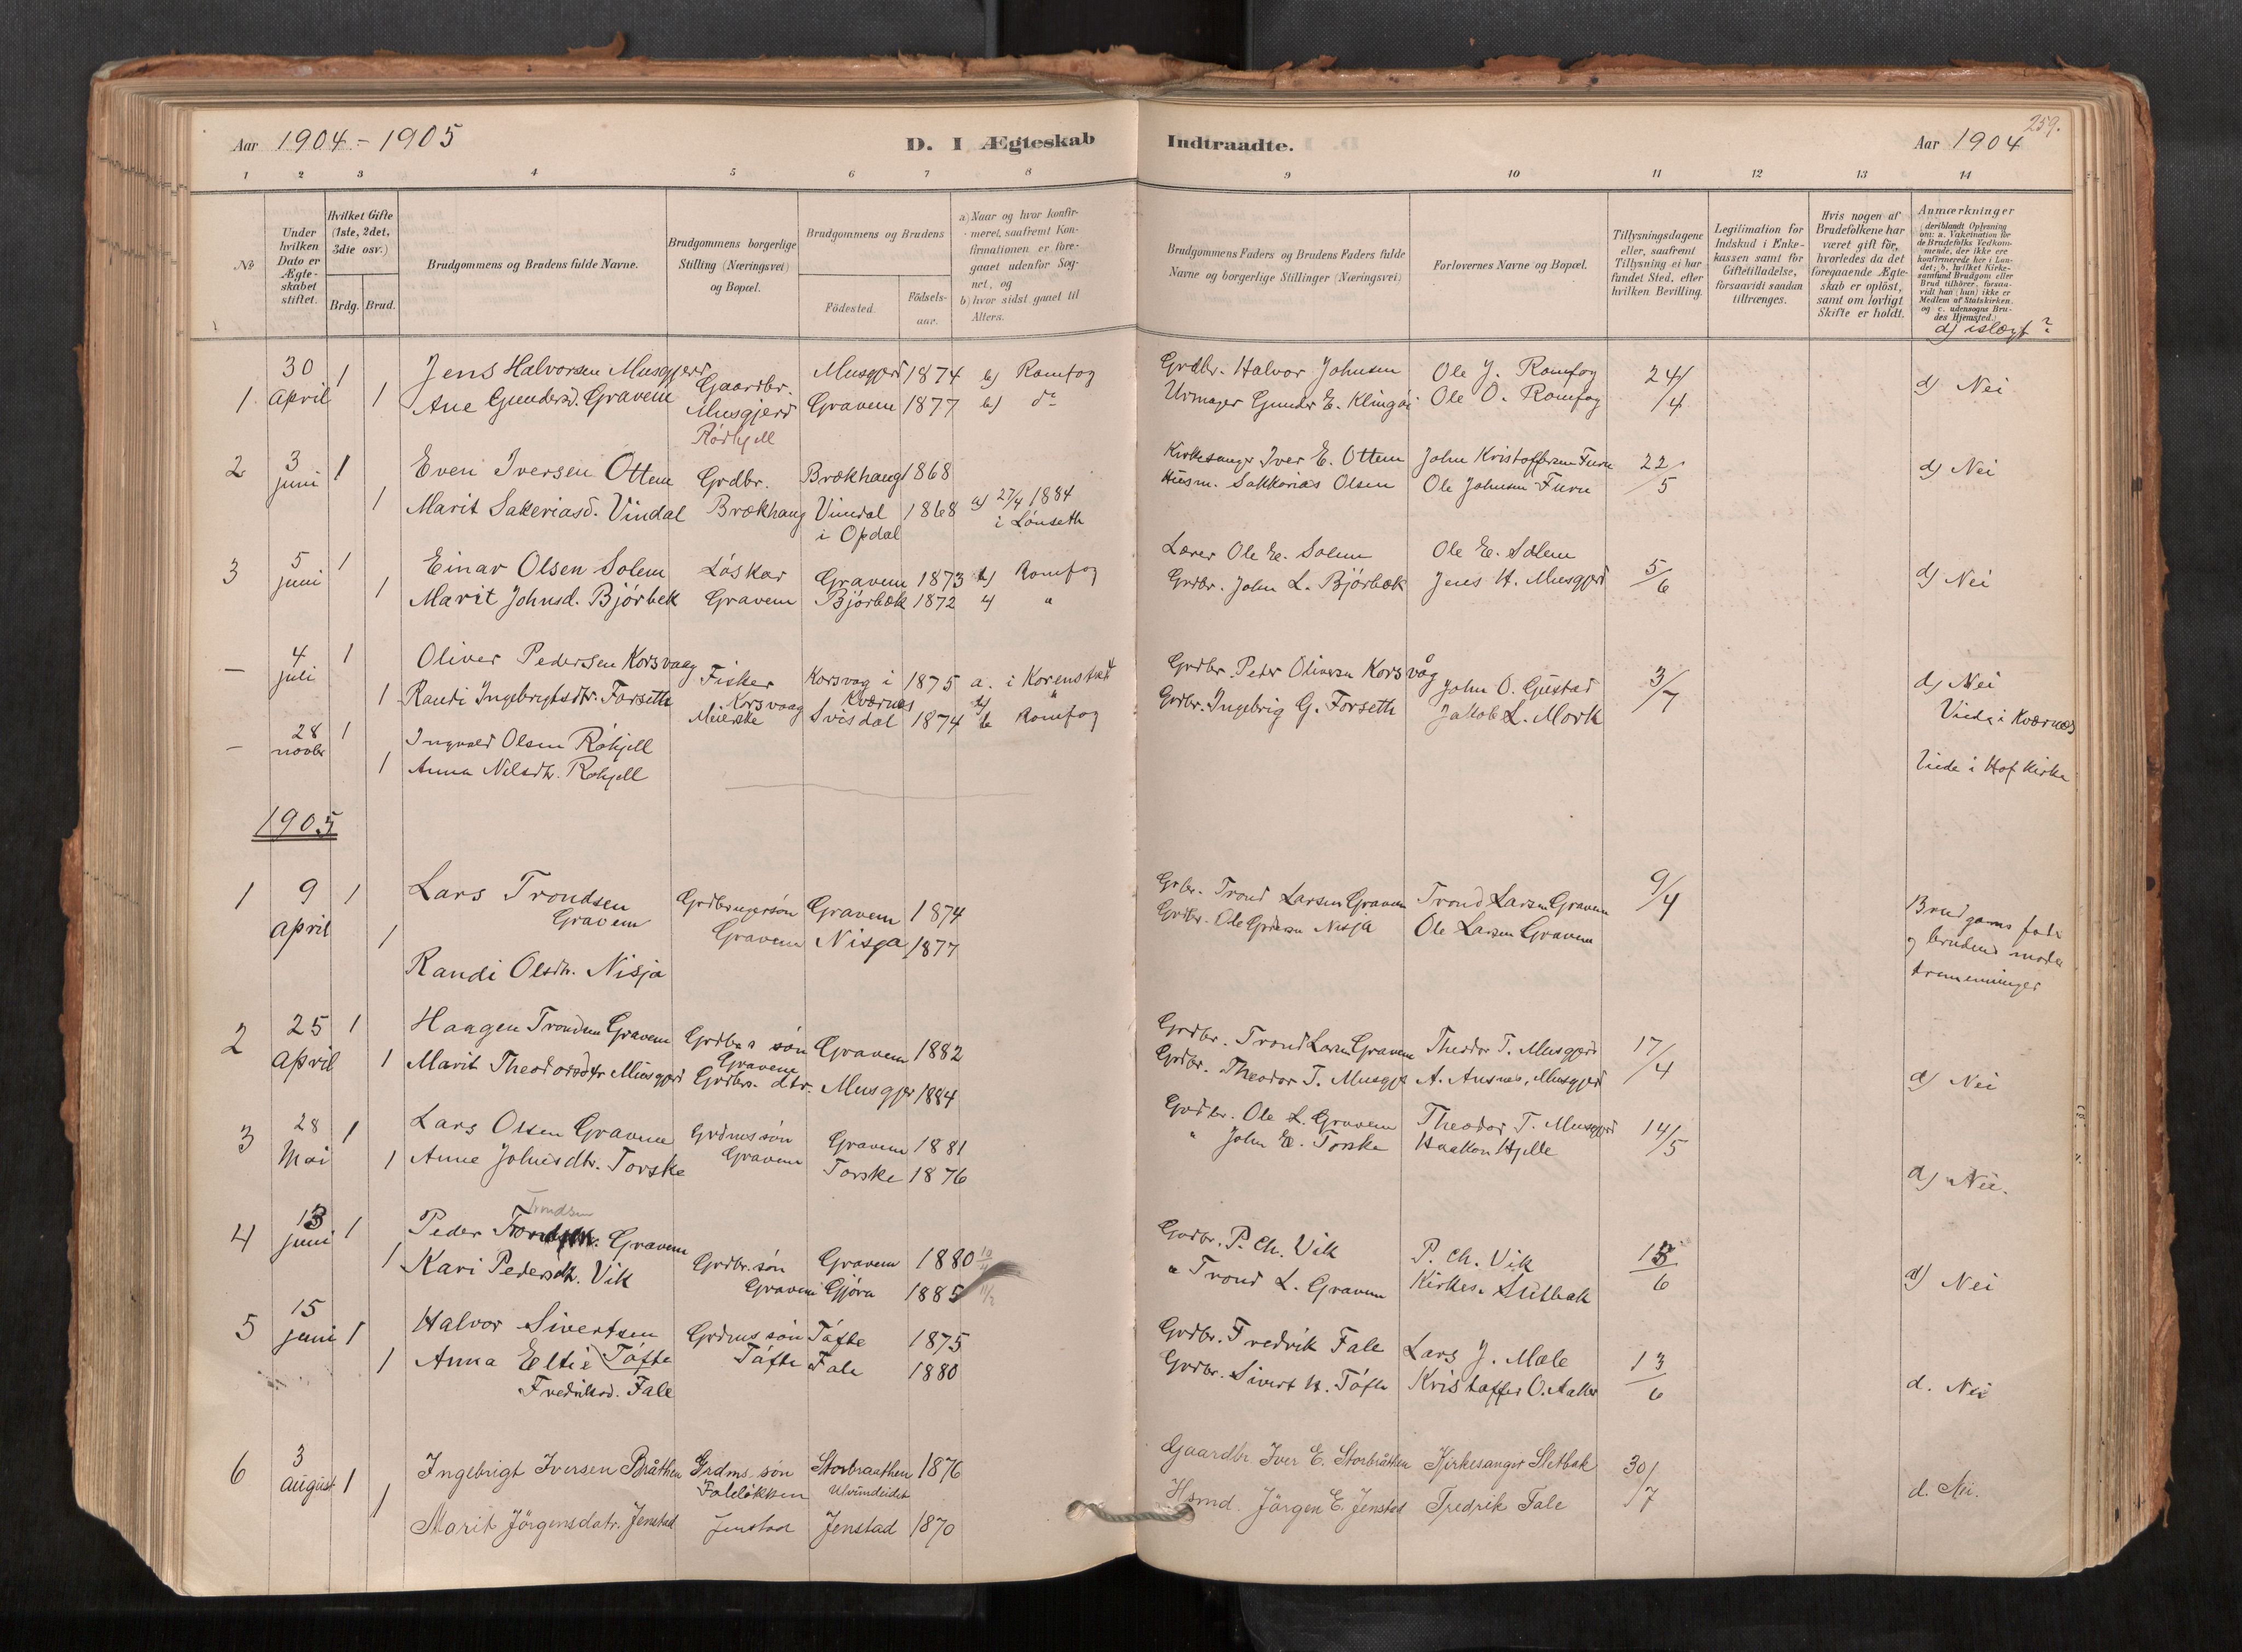 259.
Aar 1904 - 1905
D. I Ægteskab
Indtraadte.
Aar 1904
1 2 3 4 5 6 7 8 9 10 11 12 13 14
No
Under hvilken Dato er Ægteskabet stiftet.
Hvilket Gifte (1ste, 2det, 3die osv.)
Brdg. Brud.
Brudgommens og Brudens fulde Navne.
Brudgommens borgerlige Stilling (Næringsvei) og Bopæl.
Brudgommens og Brudens
Födested.
Födsels-aar.
a) Naar og hvor konfirmeret, saafremt Konfirmationen er foregaaet udenfor Sognet, og
b) hvor sidst gaaet til Alters.
Brudgommens Faders og Brudens Faders fulde Navne og borgerlige Stillinger (Næringsvei)
Forlovernes Navne og Bopæl.
Tillysningsdagene eller, saafremt Tillysning ei har fundet Sted, efter hvilken Bevilling.
Legitimation for Indskud i Enkekassen samt for Giftetilladelse, forsaavidt saadan tiltrænges.
Hvis nogen af Brudefolkene har været gift för, hvorledes da det foregaaende Ægteskab er oplöst, samt om lovligt Skifte er holdt.
Anmærkninger
(deriblandt Oplysning om: a. Vakcination for de Brudefolks Vedkommende, der ikke ere konfirmerede her i Landet; b. hvilket Kirkesamfund Brudgom eller Brud tilhörer, forsaavidt han (hun) ikke er Medlem af Statskirken. og c. udensogns Brudes Hjemsted.)
d) i slægt?
1 30 April 1 Jens Halvorsen Musgjerd Gaardbr. Musgjerd 1874 b) Romfog Grdbr. Halvor Johnsen Ole J. Romfog 24/4 d) Nei
1 Ane Gundersd. Gravem Musgjerd Gravem 1877 b) do Urmager Gunder E. Klingøi Ole O. Romfog
Rödhjell
2 3 juni 1 Even Iversen Ottem Grdbr. Brækhaug 1868 Kirkesanger Iver E. Ottem John Kristoffersen Furu 22/5 d) Nei
1 Marit Sakeriasd. Vindal Brækhaug Vindal 1868 a) 27/4 1884 Husm. Sakkarias Olsen Ole Johnsen Furu
i Opdal i Lönseth
3 5 juni 1 Einar Olsen Solem Löskar Gravem 1873 b) Romfog Lærer Ole E. Solem Ole E. Solem 5/6 d) Nei
1 Marit Johnsd. Björbek Gravem Björbæk 1872 " Grdbr. John L. Björbæk Jens H. Musgjerd
— 4 juli 1 Oliver Pedersen Korsvaag Fisker Korsvag i Kværnes 1875 a. i Grdbr. Peder Oliversen Korsvåg John O. Gustad 3/7 d) Nei
1 Randi Ingebrigtsdtr. Forseth Korsvaag Meierske Svisdal 1874 b Romfog Grdbr. Ingebrig G. Forseth Jakob L. Mork Viede i Kværnes
— 28 novbr 1 Ingvald Olsen Röhjell
1 Anna Nilsdtr. Röhjell Viede i Hof Kirke
1905
1 9 April 1 Lars Trondsen Gravem Grdbrugersön Gravem 1874 Grbr. Trond Larsen Gravem Trond Larsen Gravem 9/4 Brudgoms fader
1 Gravem Nisja 1877 Grdbr. Ole Nisja Ole Larsen Gravem og brudens moder
Randi Olsdtr. Nisja tremenninger
2 25 April 1 Haagen Trondsen Gravem Grdbrs sön Gravem Gravem 1882 Grdbr. Trond Larsen Gravem Theodor T. Musgjerd 17/4
1 Marit Theodorsdtr Musgjerd Grdbrs. dtr. Musgjer 1884 Grdbr. Theodor T. Musgje A. Ansnes, Musgjerd d) Nei
3 28 Mai 1 Lars Olsen Gravem Grdms sön Gravem 1881 Grdbr. Ole L. Gravem Theodor T. Musgjerd 14/5
1 Anne Johnsdtr. Torske Gravem Torske 1876 " John E. Torske Haakon Hjelle d) Nei.
Trondsen
4 13 juni 1 Peder Gravem Grdbr. sön Gravem 1880 Grdbr. P. Ch. Vik P. Ch. Vik 13/6
1 Kari Pedersdtr. Vik Gravem Gjöra 1885 " Trond L. Gravem Kirkes. Sletbak d) Nei
5 15 juni 1 Halvor Sivertsen Töfte Grdms sön Töfte 1875 Grdbr. Fredrik Fale Lars J. Mæle 13/6
1 Anna Eltie Töfte Fale 1880 Grdbr. Sivert H. Töfte Kristoffer O. d. Nei
Fredriksd. Fale
6 3 August 1 Ingebrigt Iversen Bråthen Grdms. sön Storbraathen 1876 Gaardbr Iver E. Storbråthen Kjirkesanger Sletbak 30/7
Faleløkken Ulvundeidet
1 Marit Jörgensdatr. Jenstad Jenstad Jenstad 1870 Hsmd. Jörgen E. Jenstad Fredrik Fale d. Nei.